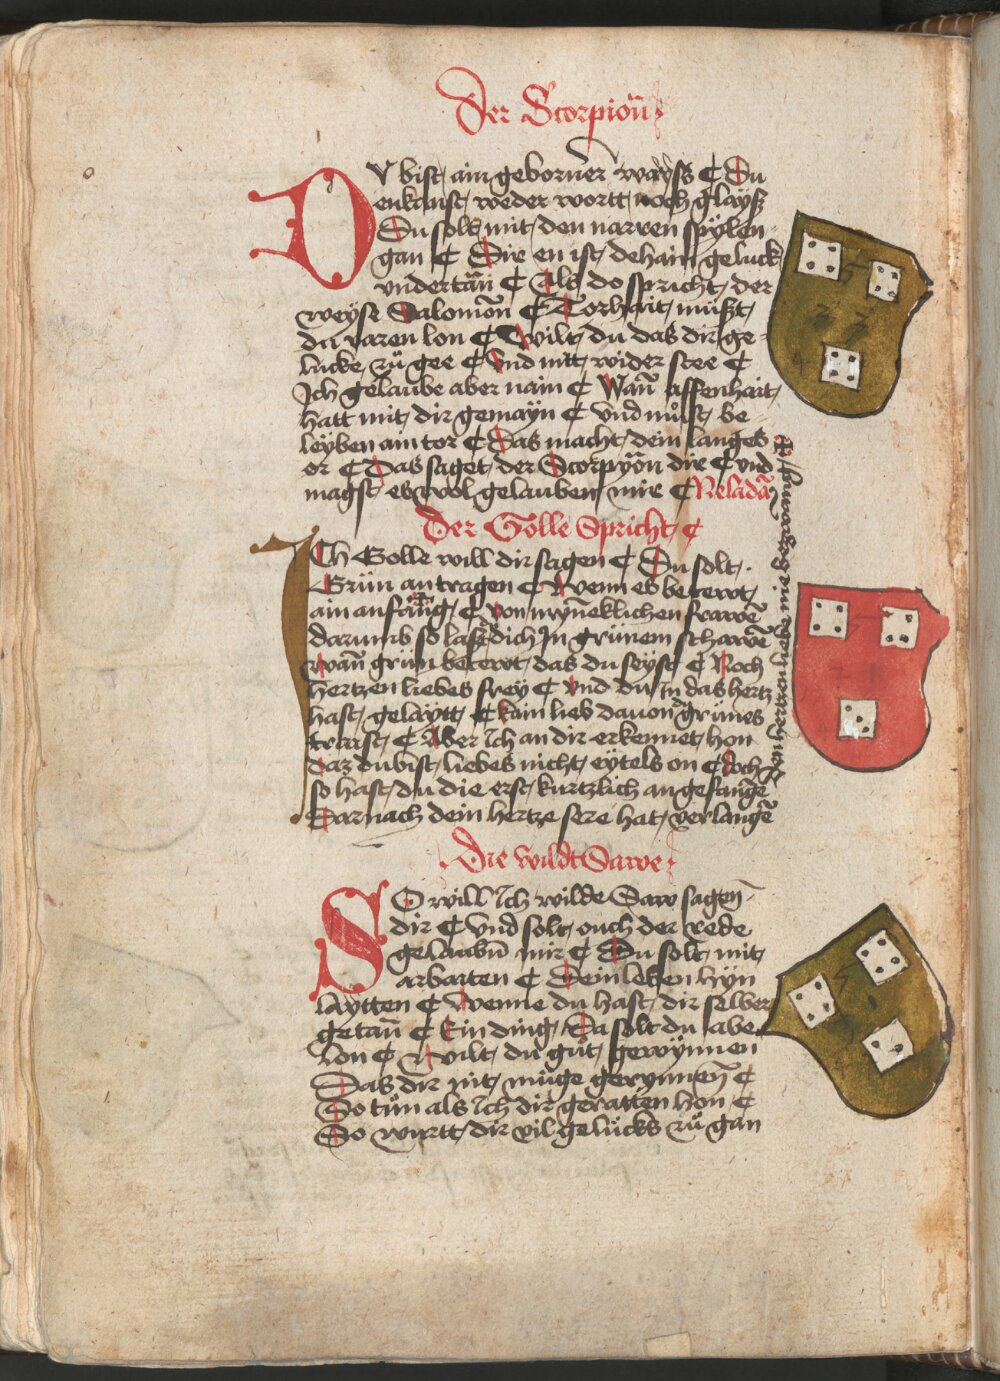 Der Scorpion
DV bist ain geborner wayß ¶ Du
enkanst weder wortt noch glayß
Du solt mit den narren spylen
gan ¶ Dir en ist dehain geluck
vndertän ¶ Als do spricht der
weyse Salomön ¶ Torhait müßt
du varen lon ¶ Wilt du das dir ge-
lucke zü gee ¶ Vnd nitt wider stee ¶
Ich gelaube aber nain ¶ Wañ affenhait
hatt mit dir gemayn ¶ Vnd müst be-
leyben ain tor ¶ Das macht dein langes
or ¶ Das saget der Scorpyön dir ¶ vnd
magst es wol gelauben mir ¶
Der Golle Spricht ¶
ICh Golle will dir sagen ¶ Du solt
Grün an tragen ¶ Wenn es betewt
ain anfang ¶ Von mynneklichen frawē
darumb so laß dich In grünem schawē
Wañ grün betewt das du seyst ¶ Noch
hertzen liebes frey ¶ Vnd du In das hertz
hast gelaytt ¶ kain lieb dauon dz grünes
traist ¶ Aber Ich an dir erkennet hon
daz du bist liebes nicht eytels on ¶ Doch
so hast du die erst kurtzlich angefangē
Darnach dein hertze sere hat verlangē
hertzen liebe nie
Die wildt Sawe
SO will Ich wilde Saw sagen
dir ¶ Vnd solt ouch der rede
gelaubñ mir ¶ Du solt mit
arbaiten ¶ Dein leben hyn
laytten ¶ Wenne du hast dir selber
getañ ¶ Ein ding Da solt du abe
lon ¶ Wilt du güt gewynnen
Das dir nit müge gerynnen ¶
So tün als Ich dir geratten hon ¶
So wurtt dir vil gelücks zü gan